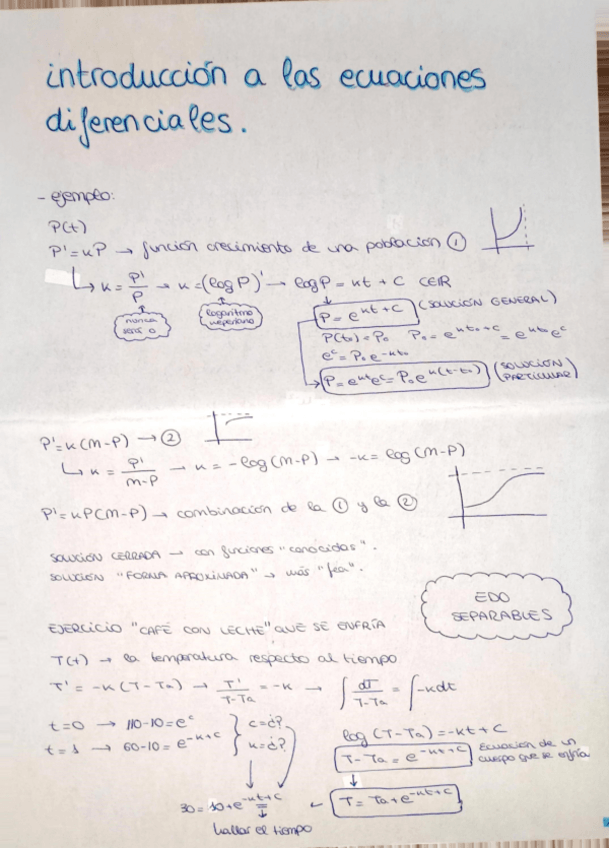 introducción a las ecuaciones
diferenciales.
- ejemplo:
P(t)
P'=κP → función crecimiento de una población ①
↳ κ = P'/P → κ = (log P)' → log P = κt + C C∈ℝ
nunca será 0
logaritmo neperiano
P = e^(κt+C) (SOLUCIÓN GENERAL)
P(t₀) = P₀ P₀ = e^(κt₀+c) = e^(κt₀) e^c
e^c = P₀ e^(-κt₀)
P = e^(κt) e^c = P₀ e^(κ(t-t₀)) (SOLUCIÓN PARTICULAR)
P' = κ(M-P) → ②
↳ κ = P'/(M-P) → κ = -log(M-P) → -κ = log(M-P)
P' = κP(M-P) → combinación de la ① y la ②
SOLUCIÓN CERRADA → con funciones "conocidas".
SOLUCIÓN "FORMA APROXIMADA" → más "fea".
EDO
SEPARABLES
EJERCICIO "CAFÉ CON LECHE" QUE SE ENFRÍA
T(t) → la temperatura respecto al tiempo
T' = -κ(T-Ta) → T'/(T-Ta) = -κ → ∫ dT/(T-Ta) = ∫ -κdt
t=0 → 110-10 = e^c } c=¿?
t=1 → 60-10 = e^(-κ+c) } κ=¿?
log(T-Ta) = -κt + C
T-Ta = e^(-κt+C) Ecuación de un cuerpo que se enfría
30 = 10 + e^(-κt+c) ← T = Ta + e^(-κt+C)
hallar el tiempo